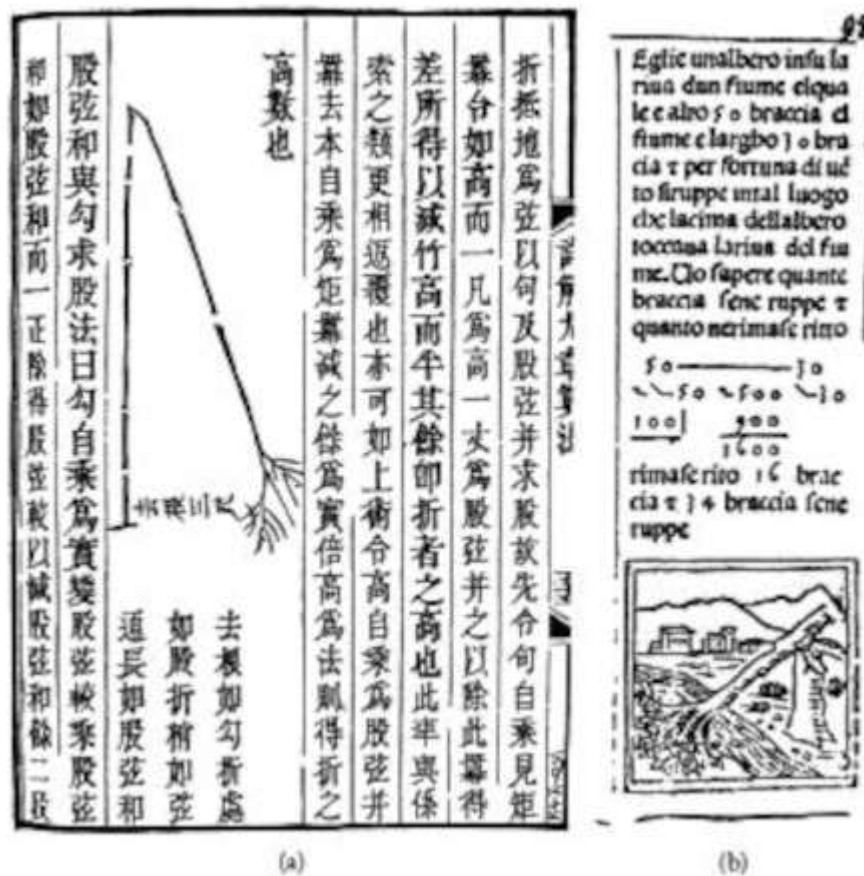 折抵地爲弦以句及股弦并求股故先令句自乘見矩
羃令如高而一凡爲高一丈爲股弦并之以除此羃得
差所得以減竹高而半其餘卽折者之高也此率與係
索之類更相返覆也亦可如上術令高自乘爲股弦并
羃去本自乘爲矩羃減之餘爲實倍高爲法則得折之
高數也
去根如勾折處
如股折梢如弦
通長如股弦和
股弦和與勾求股法曰勾自乘爲實變股弦較乘股弦
和如股弦和而一正除得股弦較以減股弦和餘二段
(a)
Eglie unalbero insu la
riua dun fiume elqua
le e alto 50 braccia el
fiume e largho 30 bra
cia τ per fortuna di uē
to siruppe intal luogo
che lacima dellalbero
toccaua lariua del fiu
me. Uo sapere quante
braccia sene ruppe τ
quanto nerimase ritto
50 30
50 2500 30
100 900
1600
rimase ritto 16 brac
cia τ 34 braccia sene
ruppe
(b)